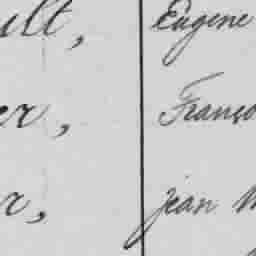 ult, Eugène
er, Franço
r, Jean M